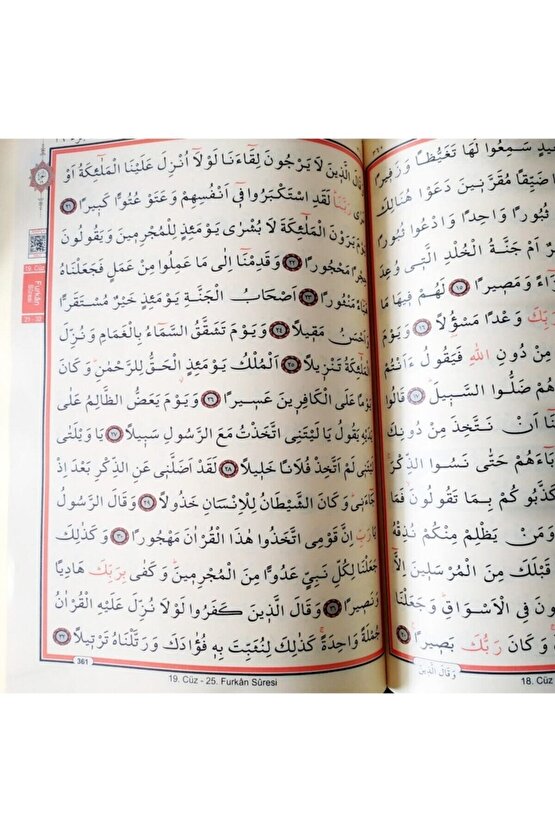 سَمِعُوا لَهَا تَغَيُّظًا وَزَفِيرًا
ضَيِّقًا مُقَرَّنِينَ دَعَوْا هُنَالِكَ
ثُبُورًا وَاحِدًا وَادْعُوا ثُبُورًا
اَمْ جَنَّةُ الْخُلْدِ الَّتِي وُعِدَ
وَمَصِيرًا ﴿١٥﴾ لَهُمْ فِيهَا مَا
وَعْدًا مَسْؤُلًا ﴿١٦﴾ وَيَوْمَ
مِنْ دُونِ اللّٰهِ فَيَقُولُ ءَاَنْتُمْ
هُمْ ضَلُّوا السَّبِيلَ ﴿١٧﴾ قَالُوا
اَنْ نَتَّخِذَ مِنْ دُونِكَ
حَتّٰى نَسُوا الذِّكْرَ
بِمَا تَقُولُونَ فَمَا
وَمَنْ يَظْلِمْ مِنْكُمْ نُذِقْهُ
قَبْلَكَ مِنَ الْمُرْسَلِينَ اِلَّا
فِي الْاَسْوَاقِ وَجَعَلْنَا
وَكَانَ رَبُّكَ بَصِيرًا ﴿٢٠﴾
وَقَالَ الَّذِينَ
18. Cüz
الَّذِينَ لَا يَرْجُونَ لِقَاءَنَا لَوْلَا اُنْزِلَ عَلَيْنَا الْمَلٰئِكَةُ اَوْ
رَبَّنَا لَقَدِ اسْتَكْبَرُوا فِي اَنْفُسِهِمْ وَعَتَوْ عُتُوًّا كَبِيرًا ﴿٢١﴾
يَرَوْنَ الْمَلٰئِكَةَ لَا بُشْرٰى يَوْمَئِذٍ لِلْمُجْرِمِينَ وَيَقُولُونَ
مَحْجُورًا ﴿٢٢﴾ وَقَدِمْنَا اِلٰى مَا عَمِلُوا مِنْ عَمَلٍ فَجَعَلْنَاهُ
مَنْثُورًا ﴿٢٣﴾ اَصْحَابُ الْجَنَّةِ يَوْمَئِذٍ خَيْرٌ مُسْتَقَرًّا
وَاَحْسَنُ مَقِيلًا ﴿٢٤﴾ وَيَوْمَ تَشَقَّقُ السَّمَاءُ بِالْغَمَامِ وَنُزِّلَ
الْمَلٰئِكَةُ تَنْزِيلًا ﴿٢٥﴾ اَلْمُلْكُ يَوْمَئِذٍ الْحَقُّ لِلرَّحْمٰنِ وَكَانَ
يَوْمًا عَلَى الْكَافِرِينَ عَسِيرًا ﴿٢٦﴾ وَيَوْمَ يَعَضُّ الظَّالِمُ عَلٰى
يَدَيْهِ يَقُولُ يَا لَيْتَنِي اتَّخَذْتُ مَعَ الرَّسُولِ سَبِيلًا ﴿٢٧﴾ يَا وَيْلَتٰى
لَيْتَنِي لَمْ اَتَّخِذْ فُلَانًا خَلِيلًا ﴿٢٨﴾ لَقَدْ اَضَلَّنِي عَنِ الذِّكْرِ بَعْدَ اِذْ
جَاءَنِي وَكَانَ الشَّيْطَانُ لِلْاِنْسَانِ خَذُولًا ﴿٢٩﴾ وَقَالَ الرَّسُولُ
يَا رَبِّ اِنَّ قَوْمِي اتَّخَذُوا هٰذَا الْقُرْاٰنَ مَهْجُورًا ﴿٣٠﴾ وَكَذٰلِكَ
جَعَلْنَا لِكُلِّ نَبِيٍّ عَدُوًّا مِنَ الْمُجْرِمِينَ وَكَفٰى بِرَبِّكَ هَادِيًا
وَنَصِيرًا ﴿٣١﴾ وَقَالَ الَّذِينَ كَفَرُوا لَوْلَا نُزِّلَ عَلَيْهِ الْقُرْاٰنُ
جُمْلَةً وَاحِدَةً كَذٰلِكَ لِنُثَبِّتَ بِهِ فُؤَادَكَ وَرَتَّلْنَاهُ تَرْتِيلًا ﴿٣٢﴾
361
19. Cüz - 25. Furkân Sûresi
19. Cüz
Furkân
Sûresi